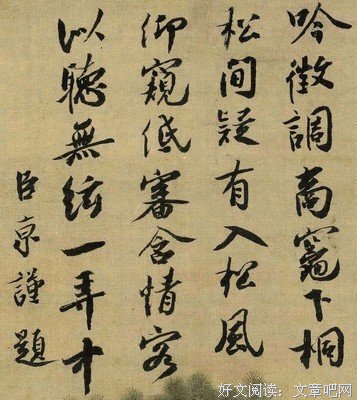 吟徵調商竈下桐
松間疑有入松風
仰窺低審含情客
以聽無絃一弄中
臣京謹題
好文阅读：文章吧网